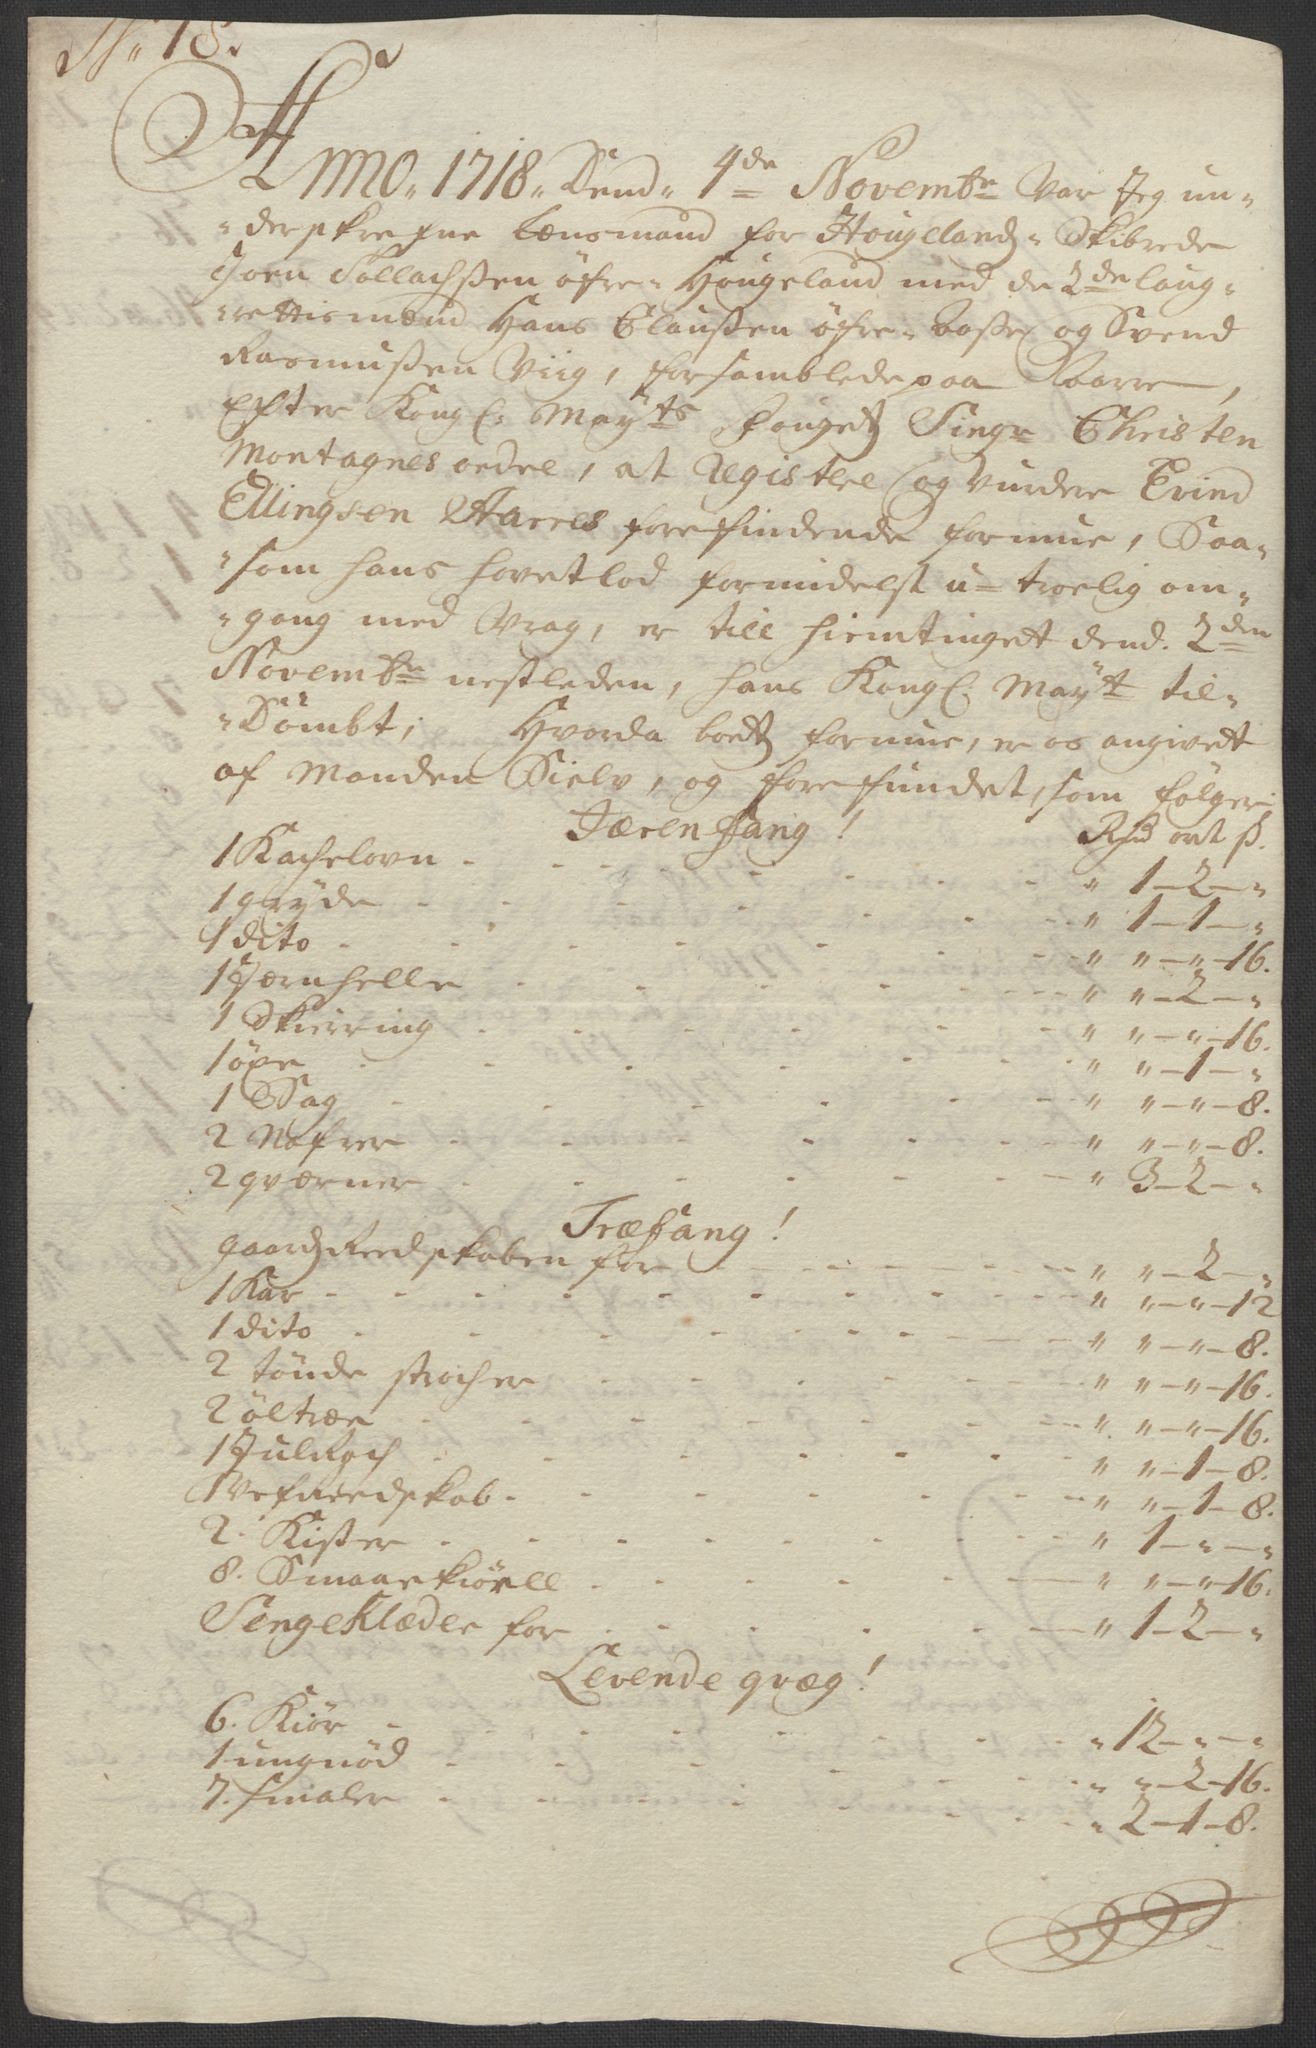 N: 18.
Anno. 1718. Dend. 4de Novembr Var Jeg un-
-derskrefne Lensmand for Hougelandz Skibrede
Joen Sollachssen öfre-Hougeland med de 2de laug-
-rettismænd Hans Claussen öfre-bosse og Svend
Rasmussen Viig, forsamblede paa Aarre,
Efter Kongl. Mayts fougetz Singr Christen
Montagnes ordre, at Registere og vurdere Evind
Ellingsen Aarres forefindende formue, Saa-
-som hans hovetlod formidelst u-troelig om-
-gang med Vrag, er till hiemtinget dend. 2den
Novembr nestleden, hans Kongl. Mayt til-
-Dömbt; Hvorda boetz formue, er os angivet
af Manden Sielv, og forefundet, som fölger
Jærenfang! Rhd ort s.
1 Kachelovn - " 1-2-"
1 gryde - " 1-1-"
1 dito - " "-"-16.
1 Jernhelle - " "-2-"
1 Skierring - " "-"-16.
1 öxe - " "-1-"
1 Sag - " "-"-8.
2 Nafrer - " "-"-8.
2 qværner - " 3-2-"
Træfang!
gaardz Reedskaben for - " "-2-"
1 Kar - " "-"-12
1 dito - " "-"-8.
2 tönde stocher - " "-"-16.
2 öltræe - " "-"-16.
1 Hul Roch - " "-1-8.
1 Vefreedskab - " "-1-8.
2. Kister - " 1-"-"
8. Smaae kiörell - " "-"-16.
SengeKlæder for - " 1-2-"
Levende qvæg!
6. Kiör - " 12-"-"
1 ungnöd - " "-2-16.
7. smaler - " 2-1-8.